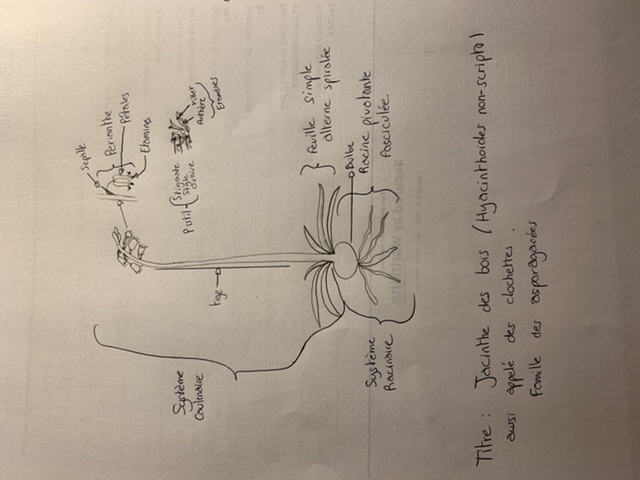 Sépale
Périanthe
Pétales
Etamine
Pistil
Stigmate
Style
Ovaire
Filet
Anthère
Etamines
feuille simple
alterne spiralée
Bulbe
Racine pivotante
fasciculée
tige
Système
Caulinaire
Système
Racinaire
Titre : Jacinthe des bois (Hyacinthoides non-scripta)
aussi appelé des clochettes.
Famille des asparagacées